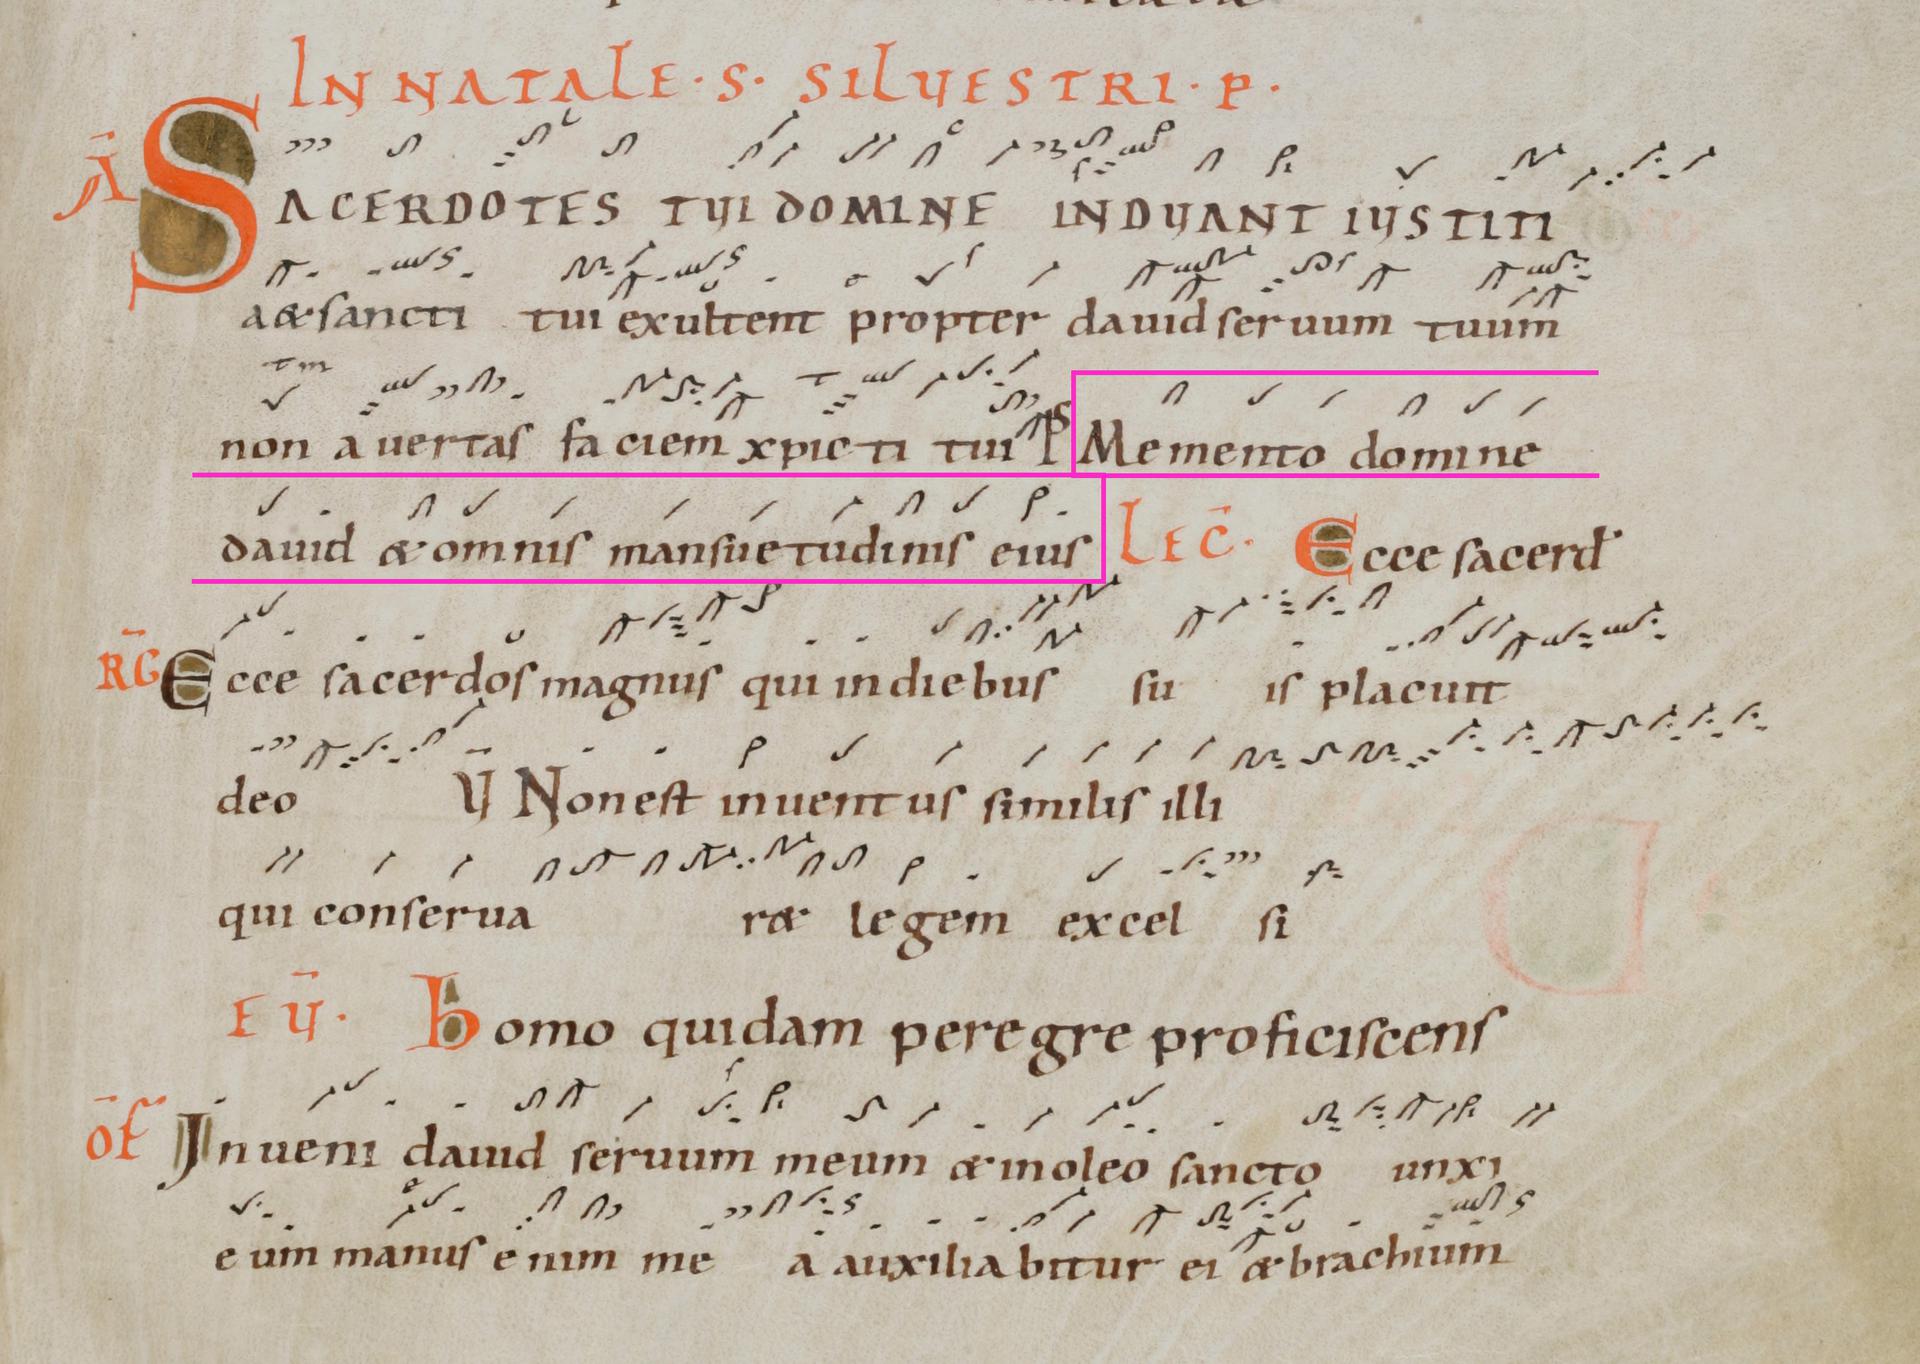 IN NATALE · S · SILVESTRI · P ·
Ā SACERDOTES TUI DOMINE INDUANT IUSTITI
a & sancti tui exultent propter dauid seruum tuum
non auertas faciem xpicti tui PS Memento domine
dauid & omnis mansuetudinis eius LEC̄ · Ecce sacerd
R̄G Ecce sacerdos magnus qui in diebus su is placuit
deo V̄ Non est inuentus similis illi
qui conserua r& legem excel si
E V̄ · homo quidam peregre proficiscens
ŌF Inueni dauid seruum meum & in oleo sancto unxi
eum manus enim me a auxiliabitur ei & brachium